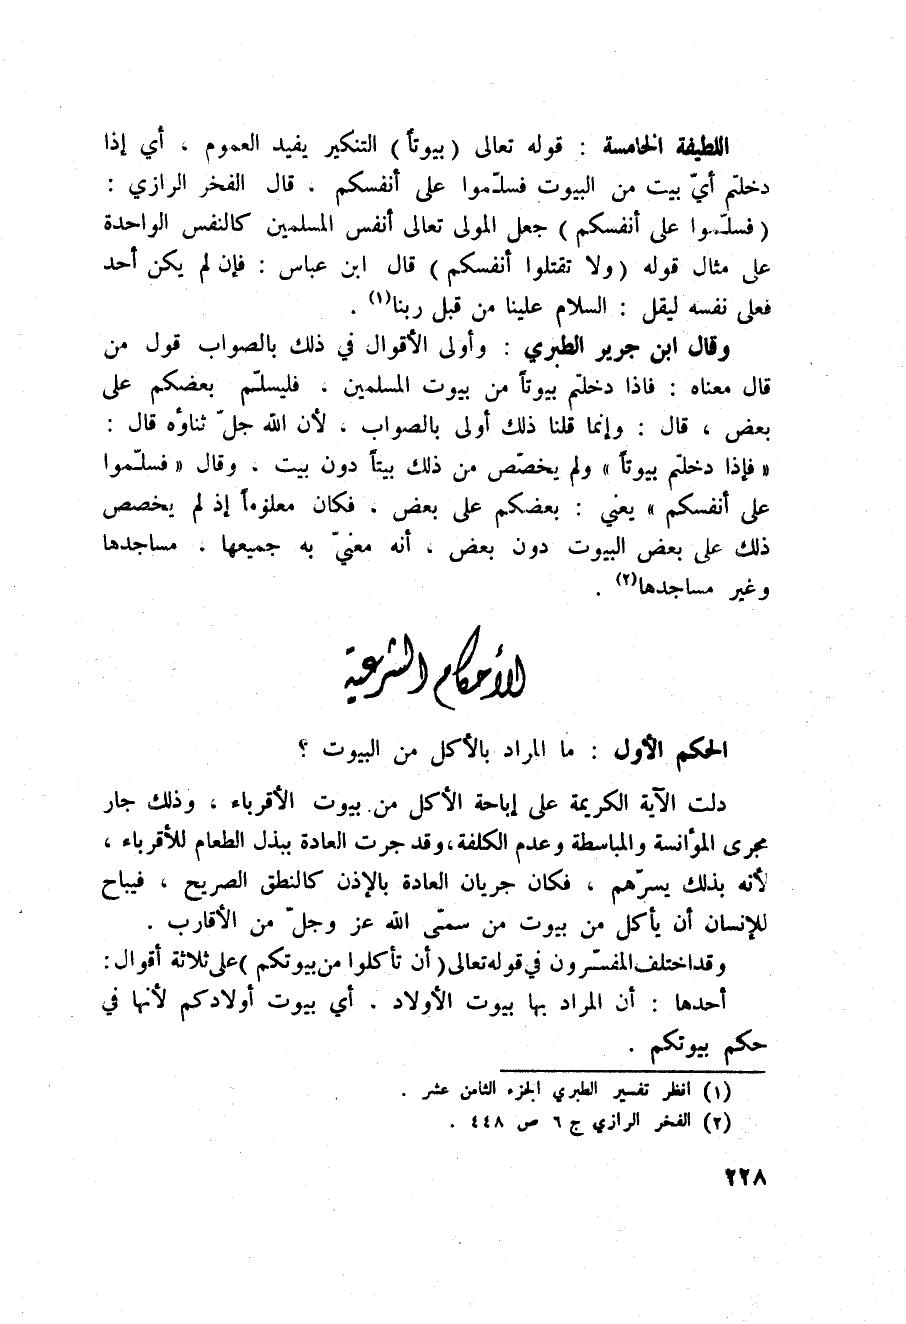 اللطيفة الخامسة : قوله تعالى ( بيوتاً ) التنكير يفيد العموم ، أي إذا
دخلتم أيّ بيت من البيوت فسلّموا على أنفسكم . قال الفخر الرازي :
( فسلّموا على أنفسكم ) جعل المولى تعالى أنفس المسلمين كالنفس الواحدة
على مثال قوله ( ولا تقتلوا أنفسكم ) قال ابن عباس : فإن لم يكن أحد
فعلى نفسه ليقل : السلام علينا من قبل ربنا(١) .
وقال ابن جرير الطبري : وأولى الأقوال في ذلك بالصواب قول من
قال معناه : فاذا دخلتم بيوتاً من بيوت المسلمين . فليسلّم بعضكم على
بعض ، قال : وإنما قلنا ذلك أولى بالصواب ، لأن الله جلّ ثناؤه قال :
« فإذا دخلتم بيوتاً » ولم يخصّص من ذلك بيتاً دون بيت . وقال « فسلّموا
على أنفسكم » يعني : بعضكم على بعض . فكان معلوماً إذ لم يخصص
ذلك على بعض البيوت دون بعض ، أنه معنيّ به جميعها . مساجدها
وغير مساجدها(٢) .
الأحكام الشرعية
الحكم الأول : ما المراد بالأكل من البيوت ؟
دلت الآية الكريمة على إباحة الأكل من بيوت الأقرباء ، وذلك جار
مجرى المؤانسة والمباسطة وعدم الكلفة، وقد جرت العادة ببذل الطعام للأقرباء ،
لأنه بذلك يسرّهم ، فكان جريان العادة بالإذن كالنطق الصريح ، فيباح
للإنسان أن يأكل من بيوت من سمّى الله عز وجلّ من الأقارب .
وقد اختلف المفسّرون في قوله تعالى ( أن تأكلوا من بيوتكم ) على ثلاثة أقوال :
أحدها : أن المراد بها بيوت الأولاد . أي بيوت أولادكم لأنها في
حكم بيوتكم .
(١) انظر تفسير الطبري الجزء الثامن عشر .
(٢) الفخر الرازي ج ٦ ص ٤٤٨ .
٢٢٨